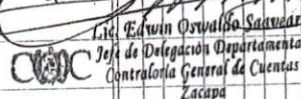 Lic. Edwin Oswaldo Saavedr
Jefe de Delegación Departamenta
Contraloría General de Cuentas
Zacapa